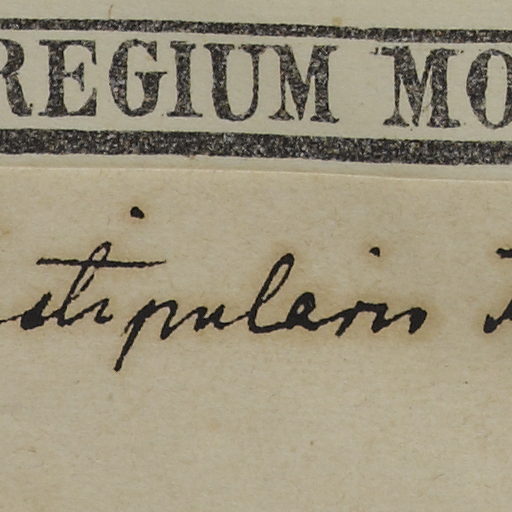 REGIUM MO
stipularis